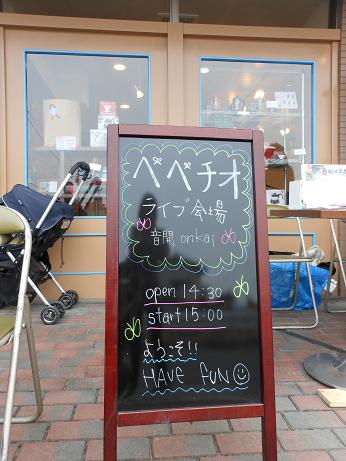 べべチオ
ライブ会場
音開 onkai
open 14:30
start 15:00
ようこそ!!
HAVE FUN